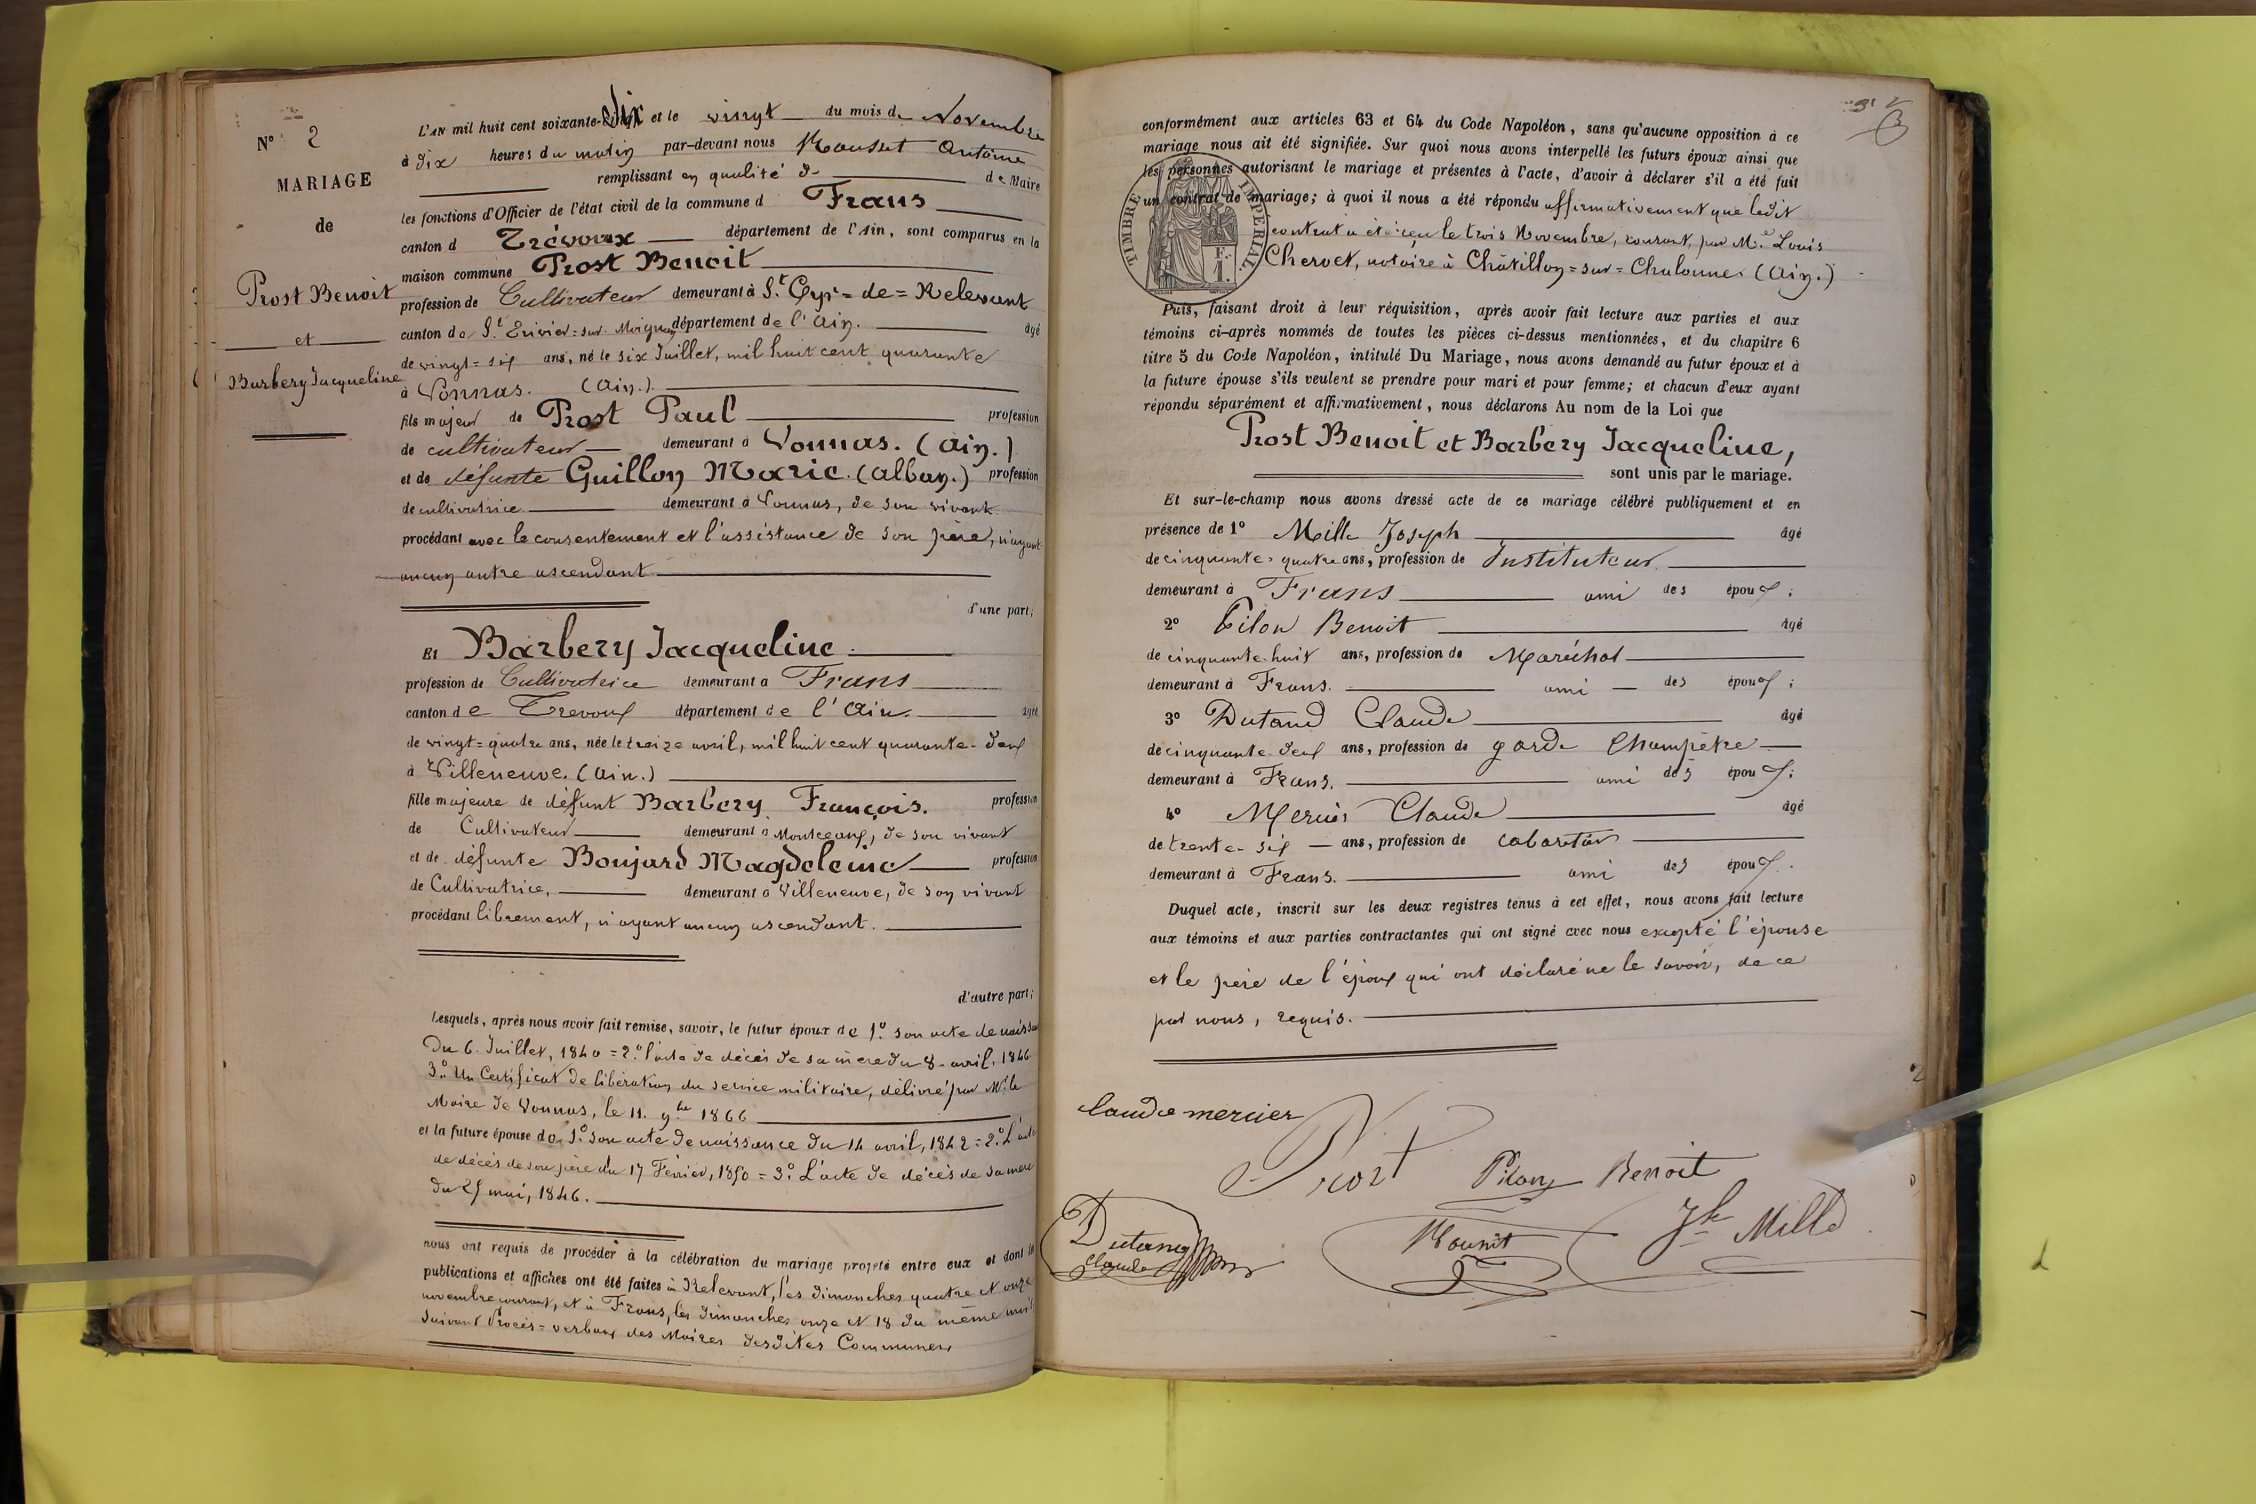 N° 2
MARIAGE
de
Prost Benoit
et
Barbery Jacqueline
L'AN mil huit cent soixante-six et le vingt du mois de Novembre
à dix heures du matin par-devant nous Mousset Antoine
remplissant en qualité de de Maire
les fonctions d'Officier de l'état civil de la commune d Frans
canton d Trévoux département de l'Ain, sont comparus en la
maison commune Prost Benoit
profession de Cultivateur demeurant à St Cyr=de=Relevant
canton de St Trivier=sur-Moignans département de l'Ain. âgé
de vingt=six ans, né le six Juillet, mil huit cent quarante
à Vonnas. (Ain.)
fils majeur de Prost Paul profession
de cultivateur demeurant à Vonnas. (Ain.)
et de défunte Guillon Marie. (Alban.) profession
de cultivatrice demeurant à Vonnas, de son vivant.
procédant avec le consentement et l'assistance de son père, n'ayant
aucun autre ascendant
d'une part;
Et Barbery Jacqueline
profession de Cultivatrice demeurant à Frans
canton de Trevoux département de l'Ain. âgée
de vingt=quatre ans, née le treize avril, mil huit cent quarante-deux
à Villeneuve. (Ain.)
fille majeure de défunt Barbery François. profession
de Cultivateur demeurant à Montceaux, de son vivant
et de défunte Boujard Magdeleine profession
de Cultivatrice, demeurant à Villeneuve, de son vivant
procédant librement, n'ayant aucun ascendant.
d'autre part;
Lesquels, après nous avoir fait remise, savoir, le futur époux de 1° son acte de naissance
Du 6 Juillet, 1840 = 2° l'acte de décès de sa mère du 8 avril, 1846
3° Un Certificat de libération du service militaire, délivré par Mr le
Maire de Vonnas, le 11. 9bre 1866
et la future épouse de 1° son acte de naissance du 14 avril, 1842 = 2° L'acte
de décès de son père du 17 Février, 1850 = 3° L'acte de décès de sa mère
du 25 mai, 1846.
nous ont requis de procéder à la célébration du mariage projeté entre eux et dont les
publications et affiches ont été faites à Relevant, les dimanches quatre et onze
novembre courant, et à Frans, les dimanches onze et 18 du même mois
suivant Procès=verbaux des Maires desdites Communes
conformément aux articles 63 et 64 du Code Napoléon, sans qu'aucune opposition à ce
mariage nous ait été signifiée. Sur quoi nous avons interpellé les futurs époux ainsi que
les personnes autorisant le mariage et présentes à l'acte, d'avoir à déclarer s'il a été fait
un contrat de mariage; à quoi il nous a été répondu affirmativement que ledit
contrat a été reçu le trois Novembre, courant, par Me Louis
Chervet, notaire à Châtillon=sur=Chalaronne. (Ain.)
TIMBRE IMPERIAL.
F.
1.
Puis, faisant droit à leur réquisition, après avoir fait lecture aux parties et aux
témoins ci-après nommés de toutes les pièces ci-dessus mentionnées, et du chapitre 6
titre 5 du Code Napoléon, intitulé Du Mariage, nous avons demandé au futur époux et à
la future épouse s'ils veulent se prendre pour mari et pour femme; et chacun d'eux ayant
répondu séparément et affirmativement, nous déclarons Au nom de la Loi que
Prost Benoit et Barbery Jacqueline,
sont unis par le mariage.
Et sur-le-champ nous avons dressé acte de ce mariage célébré publiquement et en
présence de 1° Mille Joseph âgé
de cinquante-quatre ans, profession de Instituteur
demeurant à Frans ami des époux;
2° Pilon Benoit âgé
de cinquante-huit ans, profession de Maréchal
demeurant à Frans. ami des époux;
3° Dutand Claude âgé
de cinquante-deux ans, profession de garde Champêtre
demeurant à Frans. ami des époux;
4° Mercier Claude âgé
de trente-six ans, profession de cabaretier
demeurant à Frans. ami des époux.
Duquel acte, inscrit sur les deux registres tenus à cet effet, nous avons fait lecture
aux témoins et aux parties contractantes qui ont signé avec nous excepté l'épouse
et le père de l'époux qui ont déclaré ne le savoir, de ce
par nous, requis.
claude mercier
Prost
Pilon Benoit
Dutand
Claude
Mousset
Jh Mille